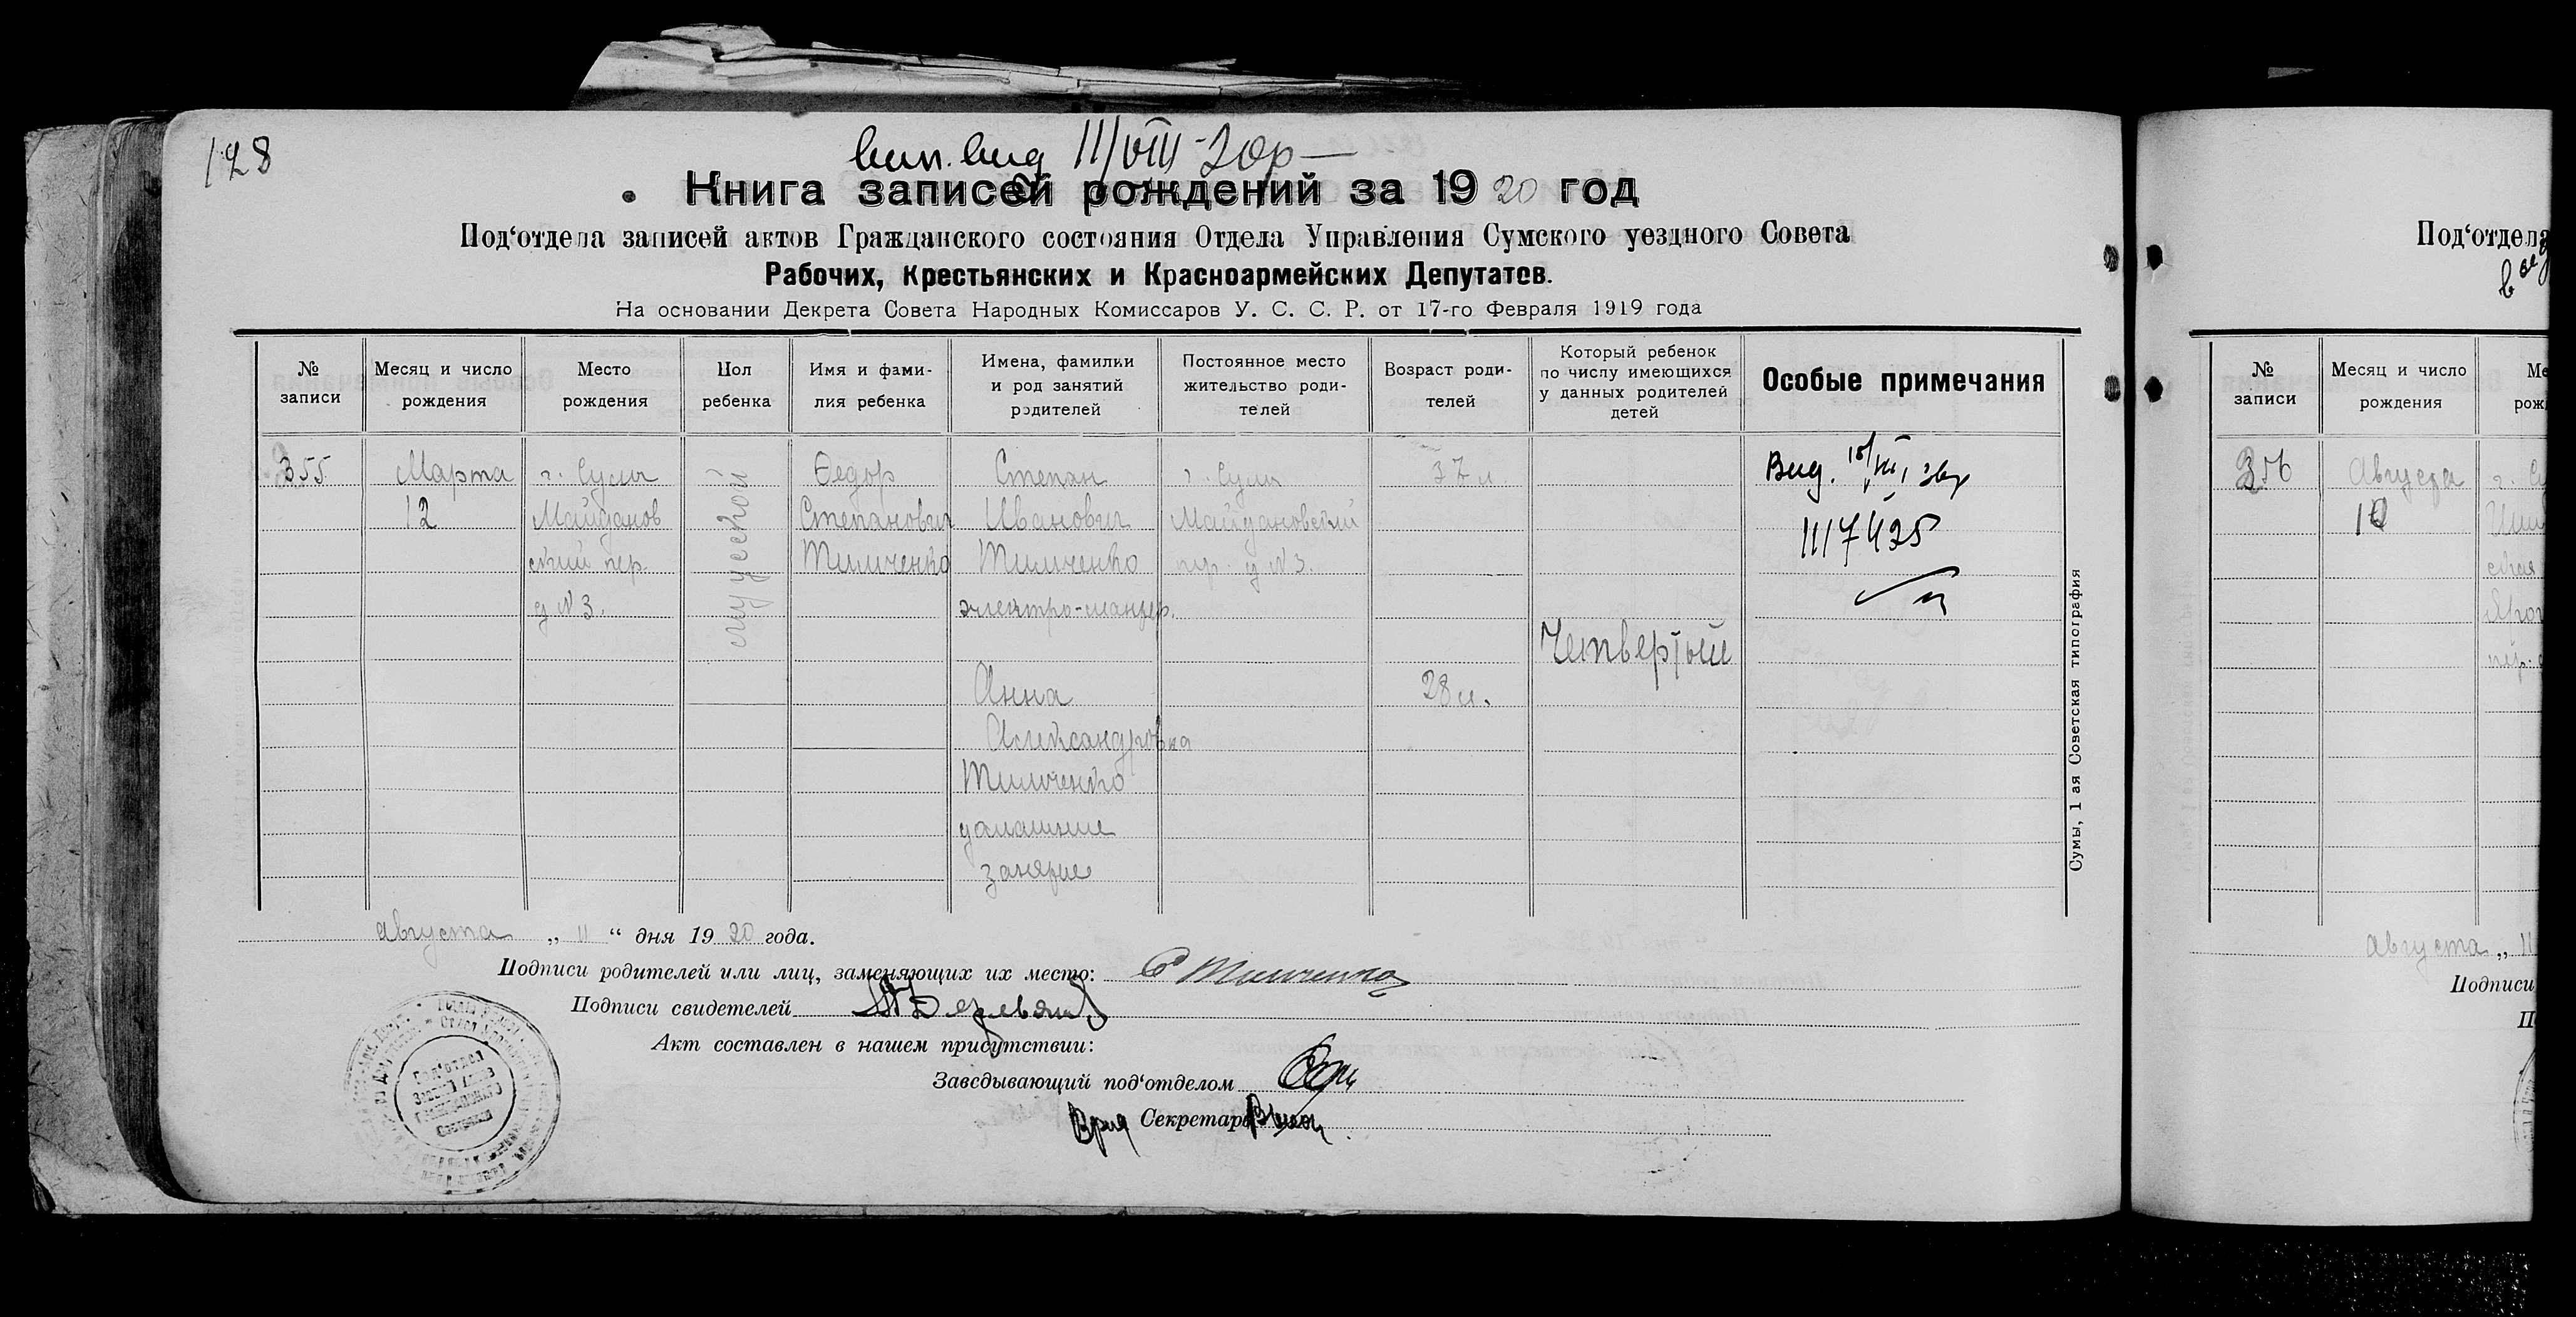 128
вип. вид 11/VIII-20р
Книга записей рождений за 1920 год
Под‘отдела записей актов Гражданского состояния Отдела Управления Сумского уездного Совета
Рабочих, Крестьянских и Красноармейских Депутатов.
На основании Декрета Совета Народных Комиссаров У. С. С. Р. от 17-го Февраля 1919 года
№ записи
Месяц и число рождения
Место рождения
Пол ребенка
Имя и фами-
лия ребенка
Имена, фамилии
и род занятий
родителей
Постоянное место
жительство роди-
телей
Возраст роди-
телей
Который ребенок
по числу имеющихся
у данных родителей
детей
Особые примечания
355
Марта
12
г. Сумы
Майданов
ский пер.
д №3.
мужеской
Ѳедор
Степанович
Тимченко
Степан
Иванович
Тимченко
электро-монтер.
Анна
Александровна
Тимченко
домашние
занятие
г. Сумы
Майдановский
пер. д №3.
37 л.
28 л.
Четвертый
Вид.
1117435
Сумы, 1 ая Советская типография
августа „ 11 “ дня 1920 года.
Подписи родителей или лиц, заменяющих их место: С Тимченко
Подписи свидетелей
Акт составлен в нашем присутствии:
Заведывающий под‘отделом
Врид Секретарь
Под‘отдел
Записей Актов
Гражданского
Состояния
Под‘отдела
№
записи
Месяц и число
рождения
356
Августа
10
августа „ 11
Подписи